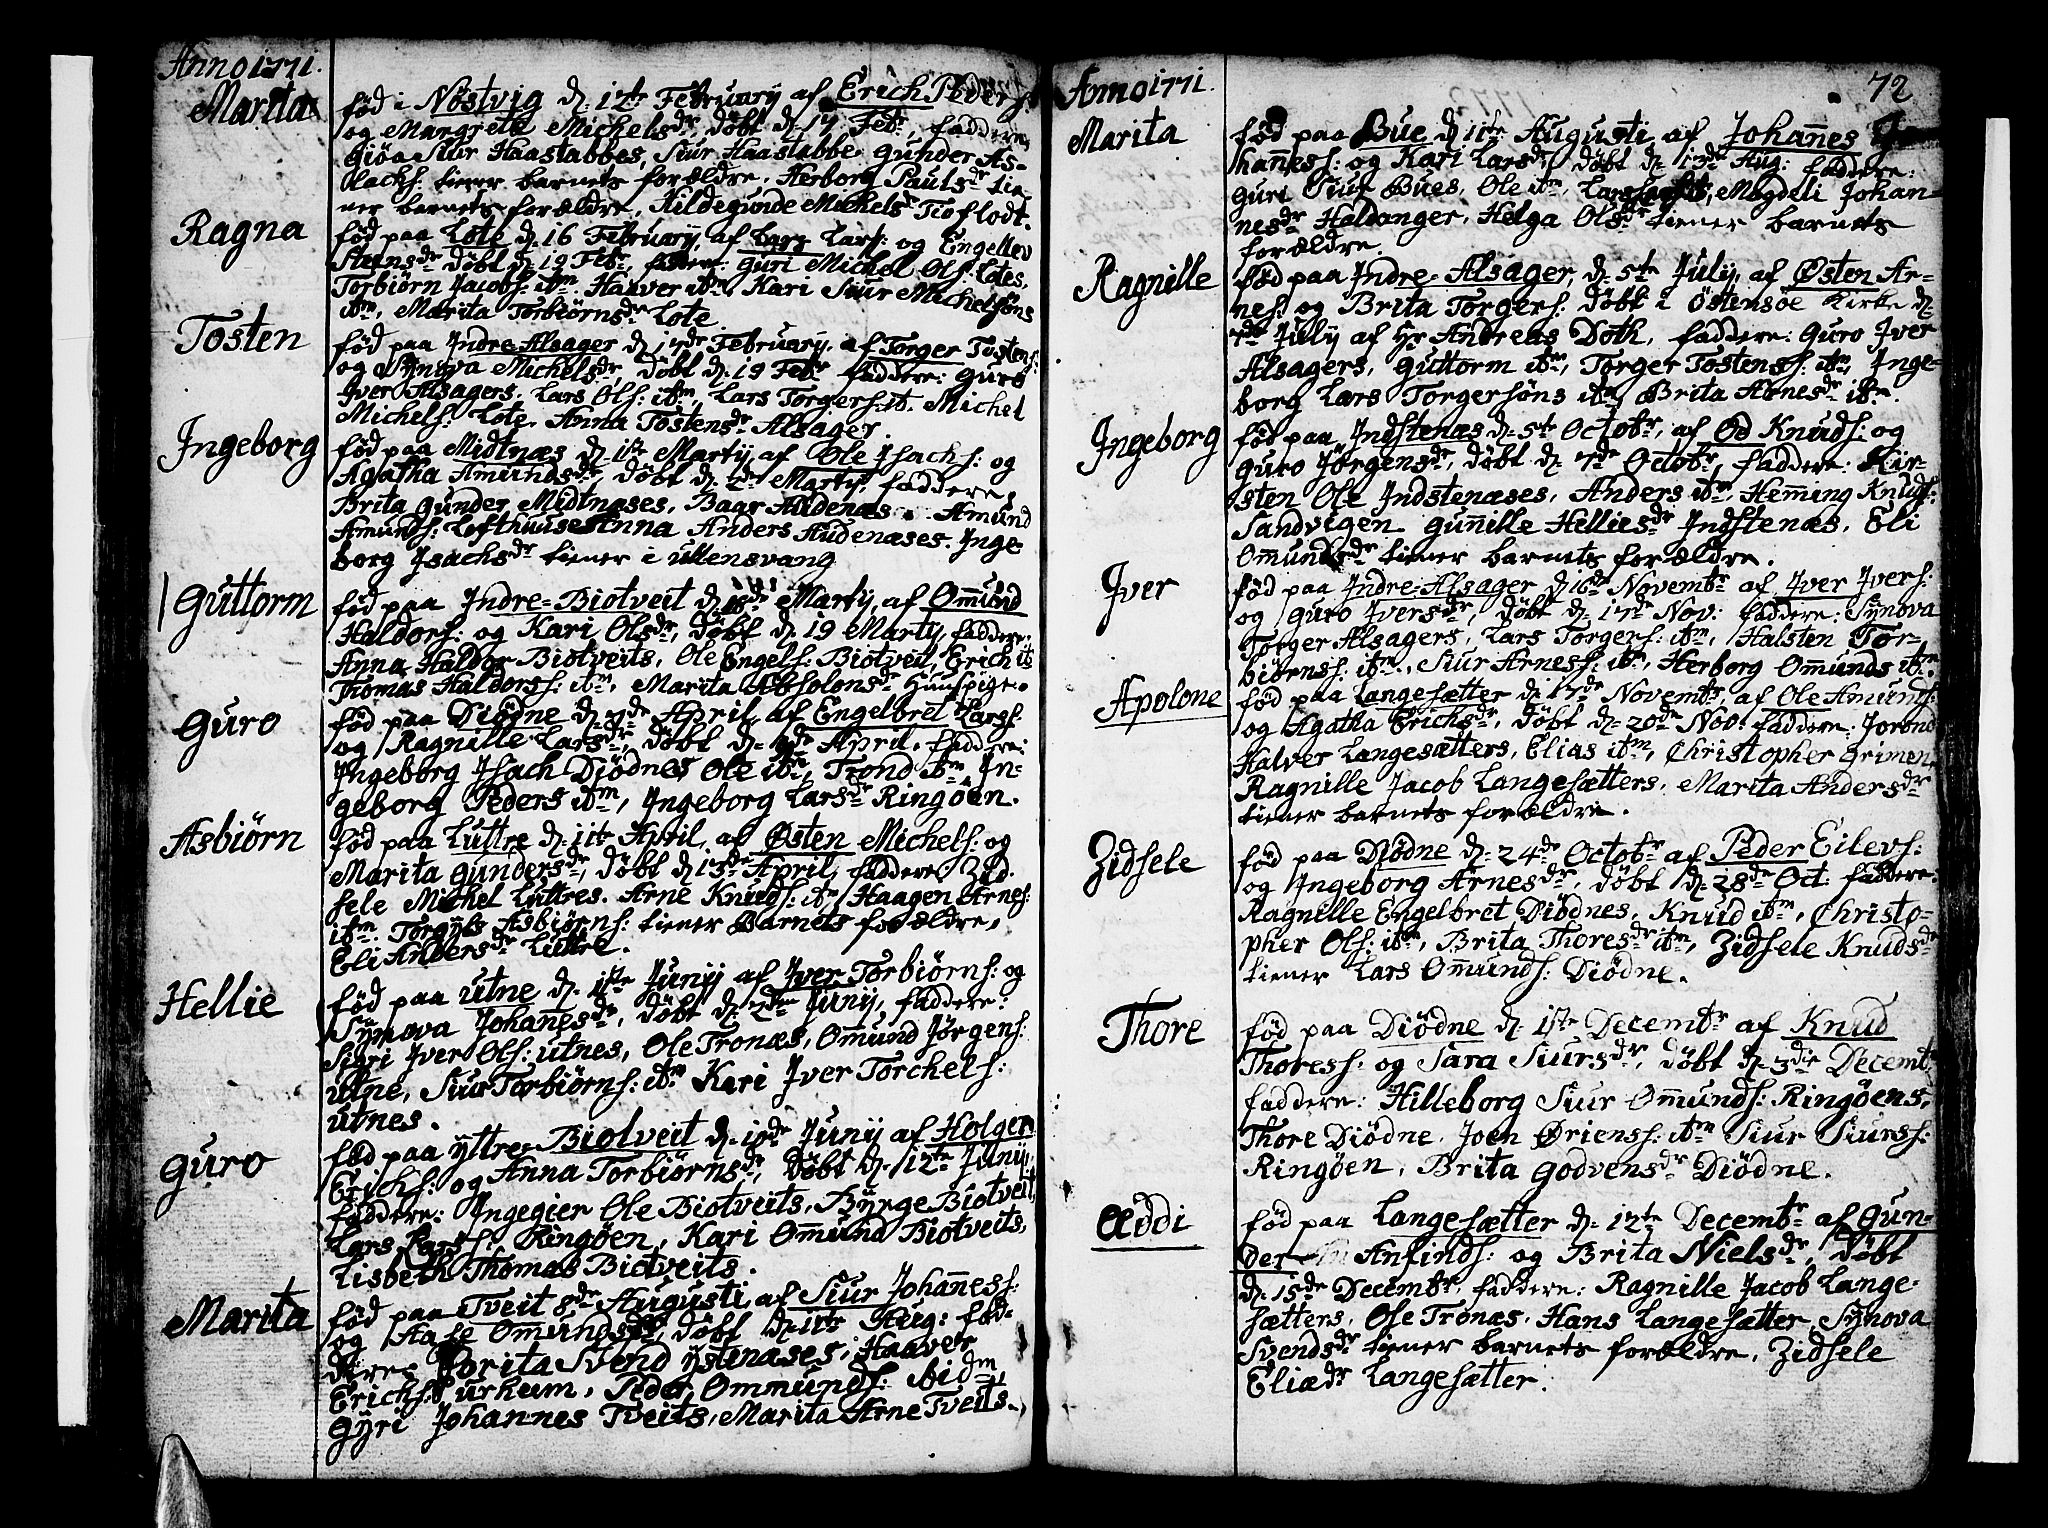 Anno 1771.
Marita
fød i Nøstvig d. 12te February af Erich Peders:
og Margrete Michelsdr, døbt d. 17 Febr, faddere
Giøa Siur Haastabbes, Siur Haastabbe, Gunder As-
lachs: tiener barnets forældre, Herborg Paulsdr tie-
ner barnets forældre, Hildegunde Michelsdr Tioflodt.
Ragna
fød paa Lote d. 16 February, af Lars Lars: og Engellev
Steinsdr døbt d. 19 Febr, faddere: Guri Michel Ols: Lotes,
Torbiørn Jacobs: itm, Haaver itm, Kari Siur Michelsøns
itm, Marita Torbiørnsdr Lote
Tosten
fød paa Indre Alsager d. 17de February, af Torger Tostens:
og Synova Michelsdr døbt d. 19 Febr faddere: Guro
Iver Alsagers, Lars Ols: itm, Lars Torgers: it. Michel
Michels: Lote, Anna Tostensdr Alsager
Ingeborg
fød paa Midtnæs d. 1ste Marty, af Ole Isachs: og
Agatha Amundsdr, døbt d. 2de Marty, faddere,
Brita Gunder Midtnæses, Baar Audenæs, Amund
Amunds: Lofthuus Anna Anders Audenæses. Inge-
borg Isachsdr tiener i Ullensvang
Guttorm
fød paa Indre-Biotveit d. 18de Marty, af Ommund
Haldors: og Kari Olsdr, døbt d. 19 Marty, faddere:
Anna Haldor Biotveits, Ole Engels: Biotveit, Erich it
Thomas Haldorss: itm, Marita Absolonsdr Huuspige.
Guro
fød paa Diødne d. 7de April, af Engelbret Lars:
og Ragnille Larsdr, døbt d. 9de April, faddere:
Ingeborg Isach Diødnes Ole itm, Trond itm, In-
geborg Peders itm, Ingeborg Larsdr Ringøen.
Asbiørn
fød paa Luttre d. 11te April, af Østen Michels: og
Marita Gundersdr, døbt d. 13de April, faddere Zid-
sele Michel Luttres. Arne Knuds: itm Haagen Arnes:
itm. Torgyls Asbiørns: tiener Barnets forældre,
Eli Andersdr Luttre.
Hellie
fød paa Utne d. 1ste Juny af Iver Torbiørns: og
Synova Johannesdr, døbt d. 2den Juny, faddere:
Sigri Iver Ols: Utnes, Ole Tronæs, Ommund Jørgens:
Utne, Siur Torbiørns: itm Kari Iver Torchels:
Utnes.
Guro
fød paa Yttre-Biotveit d. 10de Juny af Holger
Erichs: og Anna Torbiørnsdr, døbt d. 12te Juny,
faddere: Ingegier Ole Biotveits, Byrge Biotveit,
Lars Lars: Ringøen, Kari Ommund Biotveits,
Lisbeth Thomas Biotveits.
Marita
fød paa Tveit 8de Augusti, af Siur Johanness:
og Aase Omundsdr, døbt d. 11te Aug: fad-
dere Brita Svend Ystenæses, Haaver
Erichs: Urheim, Peder Ommunds: ibidm
Gyri Johannes Tveits, Marita Arne Tveits.
Anno 1771.
72
Marita
fød paa Bue d. 11te Augusti af Johannes
hanness: og Kari Larsdr, døbt d. 13de Aug: faddere:
Guri Siur Bues, Ole itm, Lars itm, Magdeli Johan-
nesdr Haldanger, Helga Olsdr tiener barnets
forældre.
Ragnille
fød paa Indre-Alsager, d. 5te July, af Østen Ar-
nes: og Brita Torgers: døbt i Østensøe Kirke d.
7de July af Hr Andreas Doth, faddere: Guro Iver
Alsagers, Guttorm itm, Torger Tostens: itm, Inge-
borg Lars Torgersøns itm, Brita Arnesdr itm.
Ingeborg
fød paa Indstenæs d. 5te Octobr, af Od Knuds: og
Guro Jørgensdr, døbt d. 7de Octobr, faddere: Kir-
sten Ole Indstenæses, Anders itm, Hemming Knuds:
Sandvigen. Gunnille Helliesdr Indstenæs, Eli
Ommundsdr tiener barnets forældre.
Iver
fød paa Indre-Alsager d. 16de Novembr af Iver Ivers:
og Guro Iversdr, døbt d. 17de Nov: faddere: Synova
Torger Alsagers, Lars Torgers: itm, Halsten Tor-
biørnss: itm, Siur Arness: itm, Herborg Ommunds itm
Apolone
fød paa Langesætter d. 17de Novembr, af Ole Amunds:
og Agatha Erichsdr, døbt d. 20de Nov: faddere: Jorond
Halver Langesætters, Elias itm, Christopher Grimen,
Ragnille Jacob Langesætters, Marita Andersdr
tiener barnets forældre.
Zidsele
fød paa Diødne d. 24de Octobr af Peder Eilevs:
og Ingeborg Arnesdr, døbt d. 28de Oct: faddere.
Ragnille Engelbret Diødnes, Knud itm, Christo-
pher Ols: itm, Brita Thoresdr itm, Zidsele Knudsdr
tiener Lars Ommunds: Diødne.
Thore
fød paa Diødne d. 1ste Decembr af Knud
Thoress: og Sara Siursdr, døbt d. 3die Decembr
faddere: Hilleborg Siur Ommunds: Ringøens,
Thore Diødne, Joen Ørienss: itm Siur Siurss:
Ringøen, Brita Godvensdr Diødne.
Æddi
fød paa Langesætter d. 12te Decembr af Gun-
der Anfinds: og Brita Nielsdr, døbt
d. 15de Decembr, faddere: Ragnille Jacob Lange-
sætters, Ole Tronæs, Hans Langesætter, Synova
Svendsdr tiener barnets forældre, Zidsele
Eliædr Langesætter.